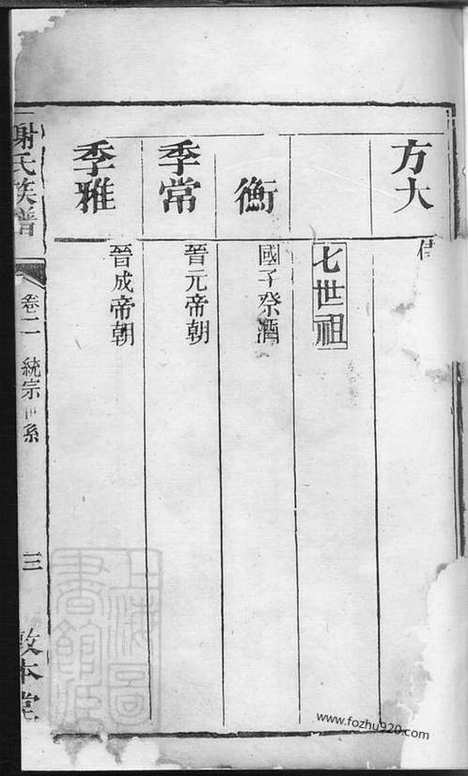 方大
七世祖
衡
國子祭酒
季常
晉元帝朝
季雅
晉成帝朝
謝氏族譜
卷二
統宗世系
三
敦本堂
上海圖書館藏
www.fozhu920.com